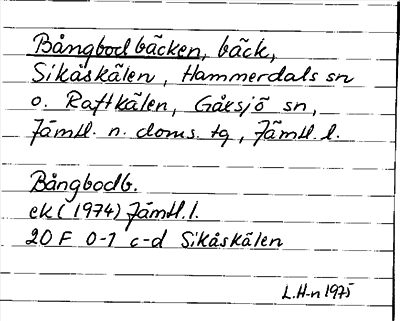 Bångbodbäcken, bäck,
Sikåskälen, Hammerdals sn
o. Raftkälen, Gåxsjö sn,
Jämtl. n. doms. tg, Jämtl. l.
Bångbodb.
ek (1974) Jämtl. l.
20 F 0-1 c-d Sikåskälen
L.H-n 1975